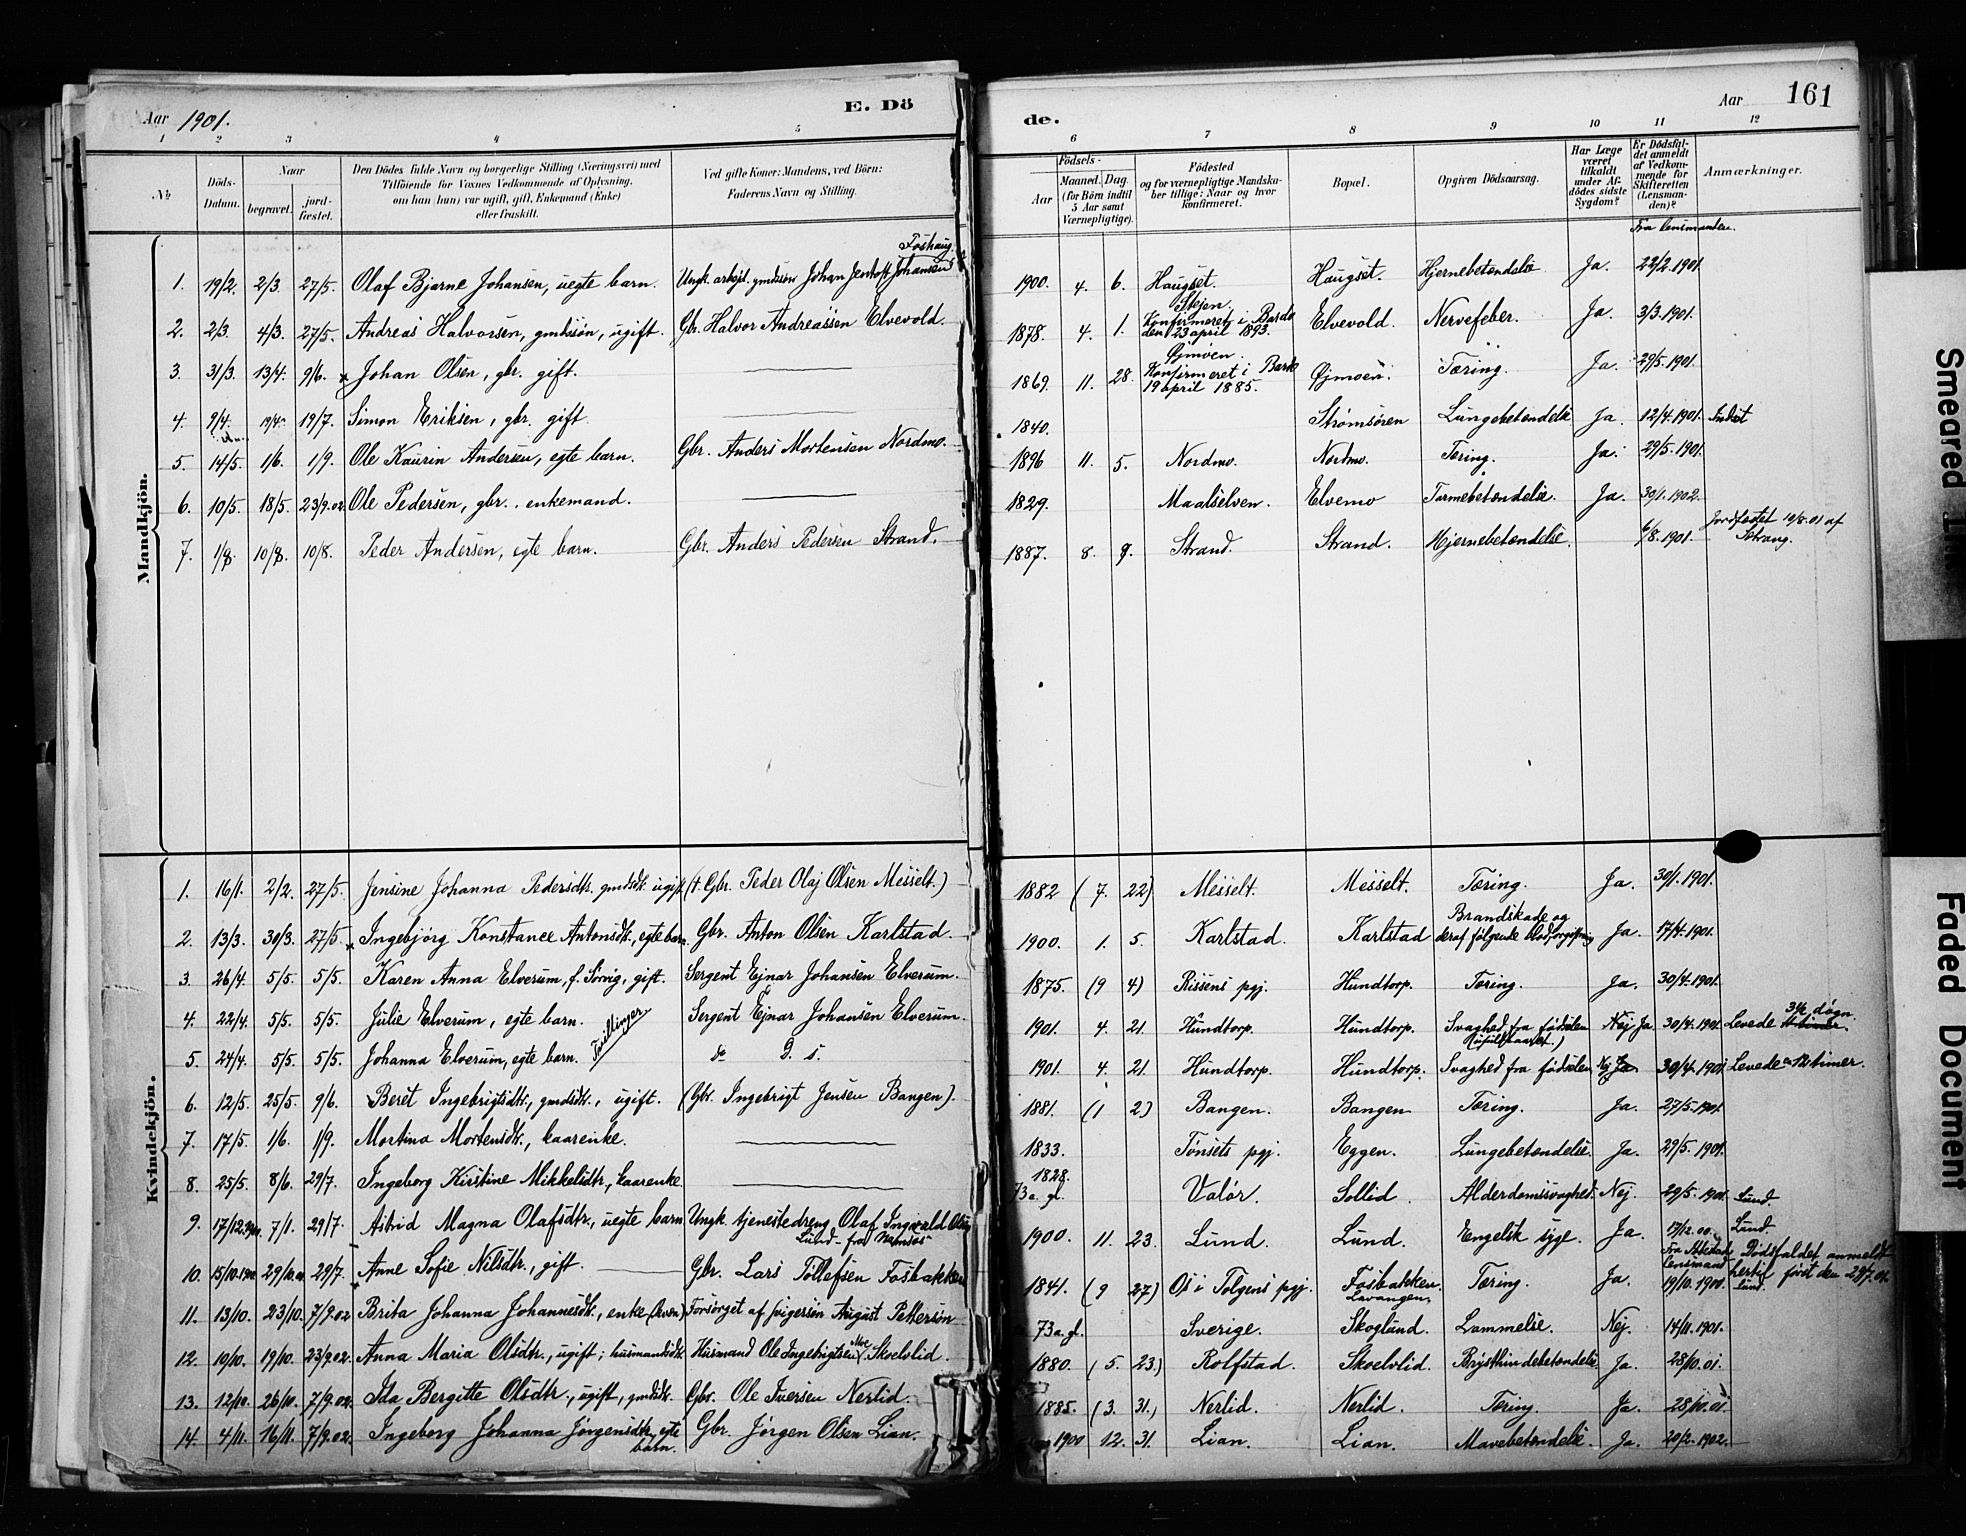 Aar 1901. E. Dö
1 2 3 4 5
№ Döds-Datum. Naar begravet. jord-fæstet. Den Dödes fulde Navn og borgerlige Stilling (Næringsvei) med Tilföiende for Voxnes Vedkommende af Oplysning, om han (hun) var ugift, gift, Enkemand (Enke) eller fraskilt. Ved gifte Koner: Mandens, ved Börn: Faderens Navn og Stilling.
Mandkjön.
Foshaug
1. 19/2. 2/3. 27/5. Olaf Bjarne Johansen, uegte barn. Ungk. arbejd. gmdssön Johan Jentoft Johansen
2. 2/3. 4/3. 27/5. Andreas Halvorsen, gmdssøn, ugift. Gbr. Halvor Andreassen Elvevold.
3. 31/3. 13/4. 9/6. Johan Olsen, gbr. gift.
4. 9/4. 19/4. 19/7. Simon Eriksen, gbr. gift
5. 14/5. 1/6. 1/9. Ole Kaurin Andersen, egte barn. Gbr. Anders Mortensen Nordmo.
6. 10/5. 18/5. 23/9.02. Ole Pedersen, gbr., enkemand.
7. 1/8. 10/8. 10/8. Peder Andersen, egte barn. Gbr. Anders Pedersen Strand.
Kvindekjön.
1. 16/1. 2/2. 27/5. Jensine Johanna Pedersdtr. gmdsdtr. ugift († Gbr. Peder Olaj Olsen Messelt.)
2. 13/3. 30/3. 27/5. Ingebjörg Konstance Antonsdtr., egte barn. Gbr. Anton Olsen Karlstad.
3. 26/4. 5/5. 5/5. Karen Anna Elverum, f. Sivvig, gift. Sergent Ejnar Johansen Elverum.
4. 22/4. 5/5. 5/5. Julie Elverum, egte barn. Tvillinger Sergent Ejnar Johansen Elverum.
5. 24/4. 5/5. 5/5. Johanna Elverum, egte barn. do D. s.
6. 12/5. 25/5. 9/6. Beret Ingebrigtsdtr., gmdsdtr., ugift. (Gbr. Ingebrigt Jensen Bangen).
7. 17/5. 1/6. 1/9. Martina Mortensdtr., kaarenke.
8. 25/5. 8/6. 29/7. Ingeborg Kirstine Mikkelsdtr., kaarenke
9. 17/12.1900. 7/1. 29/7. Astrid Magna Olafsdtr., uegte barn. Ungk. tjenestedreng Olaf Ingvald Olsen
Lund - fra Namsos -
10. 15/10.1900 29/10.00. 29/7. Anne Sofie Nilsdtr., gift. Gbr. Lars Tollefsen Fosbakken
11. 13/10. 23/10. 7/9.02 Brita Johanna Johannesdtr., enke Forsørget af svigersøn August Pettersøn
12. 10/10. 19/10. 23/9.02. Anna Maria Olsdtr., ugift; husmandsdtr. Husmand Ole Ingebrigtsen Moe, Skoelvlid.
13. 12/10. 26/10. 7/9.02. Ida Bergitte Olsdtr., ugift, gmdsdtr. Gbr. Ole Iversen Nerlid.
14. 4/11. 16/11. 7/9.02. Ingeborg Johanna Jørgensdtr., egte barn. Gbr. Jørgen Olsen Lian.
de. Aar 161
6 7 8 9 10 11 12
Födsels- Aar Maaned. Dag. (for Börn indtil 5 Aar samt Værnepligtige). Födested og for værnepligtige Mandskaber tillige: Naar og hvor konfirmeret. Bopæl. Opgiven Dödsaarsag. Har Læge været tilkaldt under Afdödes sidste Sygdom? Er Dödsfaldet anmeldt af Vedkommende for Skifteretten (Lensmanden)? Anmærkninger.
Fra lensmanden.
1900. 4. 6. Haugset. Haugset. Hjernebetændelse Ja. 22/2.1901.
1878. 4. 1. Stejen. Konfirmeret i Bardo den 23 april 1893. Elvevold. Nervefeber. Ja. 3/3.1901.
1869. 11. 28. Øjmoen. Konfirmeret i Bardo 19 april 1885. Øjmoen. Tæring. Ja. 29/5.1901.
1840. Strømsören Lungebetændelse Ja. 12/4.1901. Indset
1896 11. 5. Nordmo. Nordmo. Tæring. Ja. 29/5.1901.
1829. Maalselven. Elvemo Tarmebetændelse. Ja. 30/1.1902.
1887. 8. 9. Strand. Strand. Hjernebetændelse. 6/8.1901. Jordfæstet 10/8.01 af Sætrang.
1882 (7. 22) Messelt. Messelt. Tæring. Ja. 30/1.1901.
1900. 1. 5. Karlstad. Karlstad Brandskade og deraf følgende Blodforgiftning Ja. 17/4.1901.
1875. (9 4) Rissens pgj. Hundtorp. Tæring. Ja. 30/4.1901.
1901. 4. 21. Hundtorp. Hundtorp. Svaghed fra fødselen Nej Ja 30/4.1901 Levede 3/4 døgn
1901. 4. 21. Hundtorp. Hundtorp. Svaghed fra fødselen Nej Ja. 30/4.1901 Levede timer.
1881. (1 2) Bangen. Bangen Tæring. Ja. 27/5.1901.
1833. Tønsets pgj. Eggen. Lungebetændelse. Ja. 29/5.1901.
1828. 73 a. gl. Valør. Sollid. Alderdomssvaghed. Nej. 29/5.1901 Lund.
1900. 11. 23. Lund. Lund. Engelsk syge. Ja. 17/12.00. Lund.
1841. (9 27) Os i Tolgens pgj. Fosbakken. Lavangen. Tæring. Ja. Fra lensmand 19/10.1900. Dødsfaldet anmeldt hertil først den 29/7.01. Lund.
73 a. gl. Sverige. Skoglund. Lammelse. Nej. 14/11.1901.
1880. (5. 23) Rolfstad. Skoelvlid. Brysthindebetændelse Ja. 28/10.01.
1885. (3. 31.) Nerlid. Nerlid. Tæring. Ja. 28/10.01.
1900 12. 31. Lian. Lian. Mavebetændelse. Ja. 20/2.1902.
Smeared
Faded Document